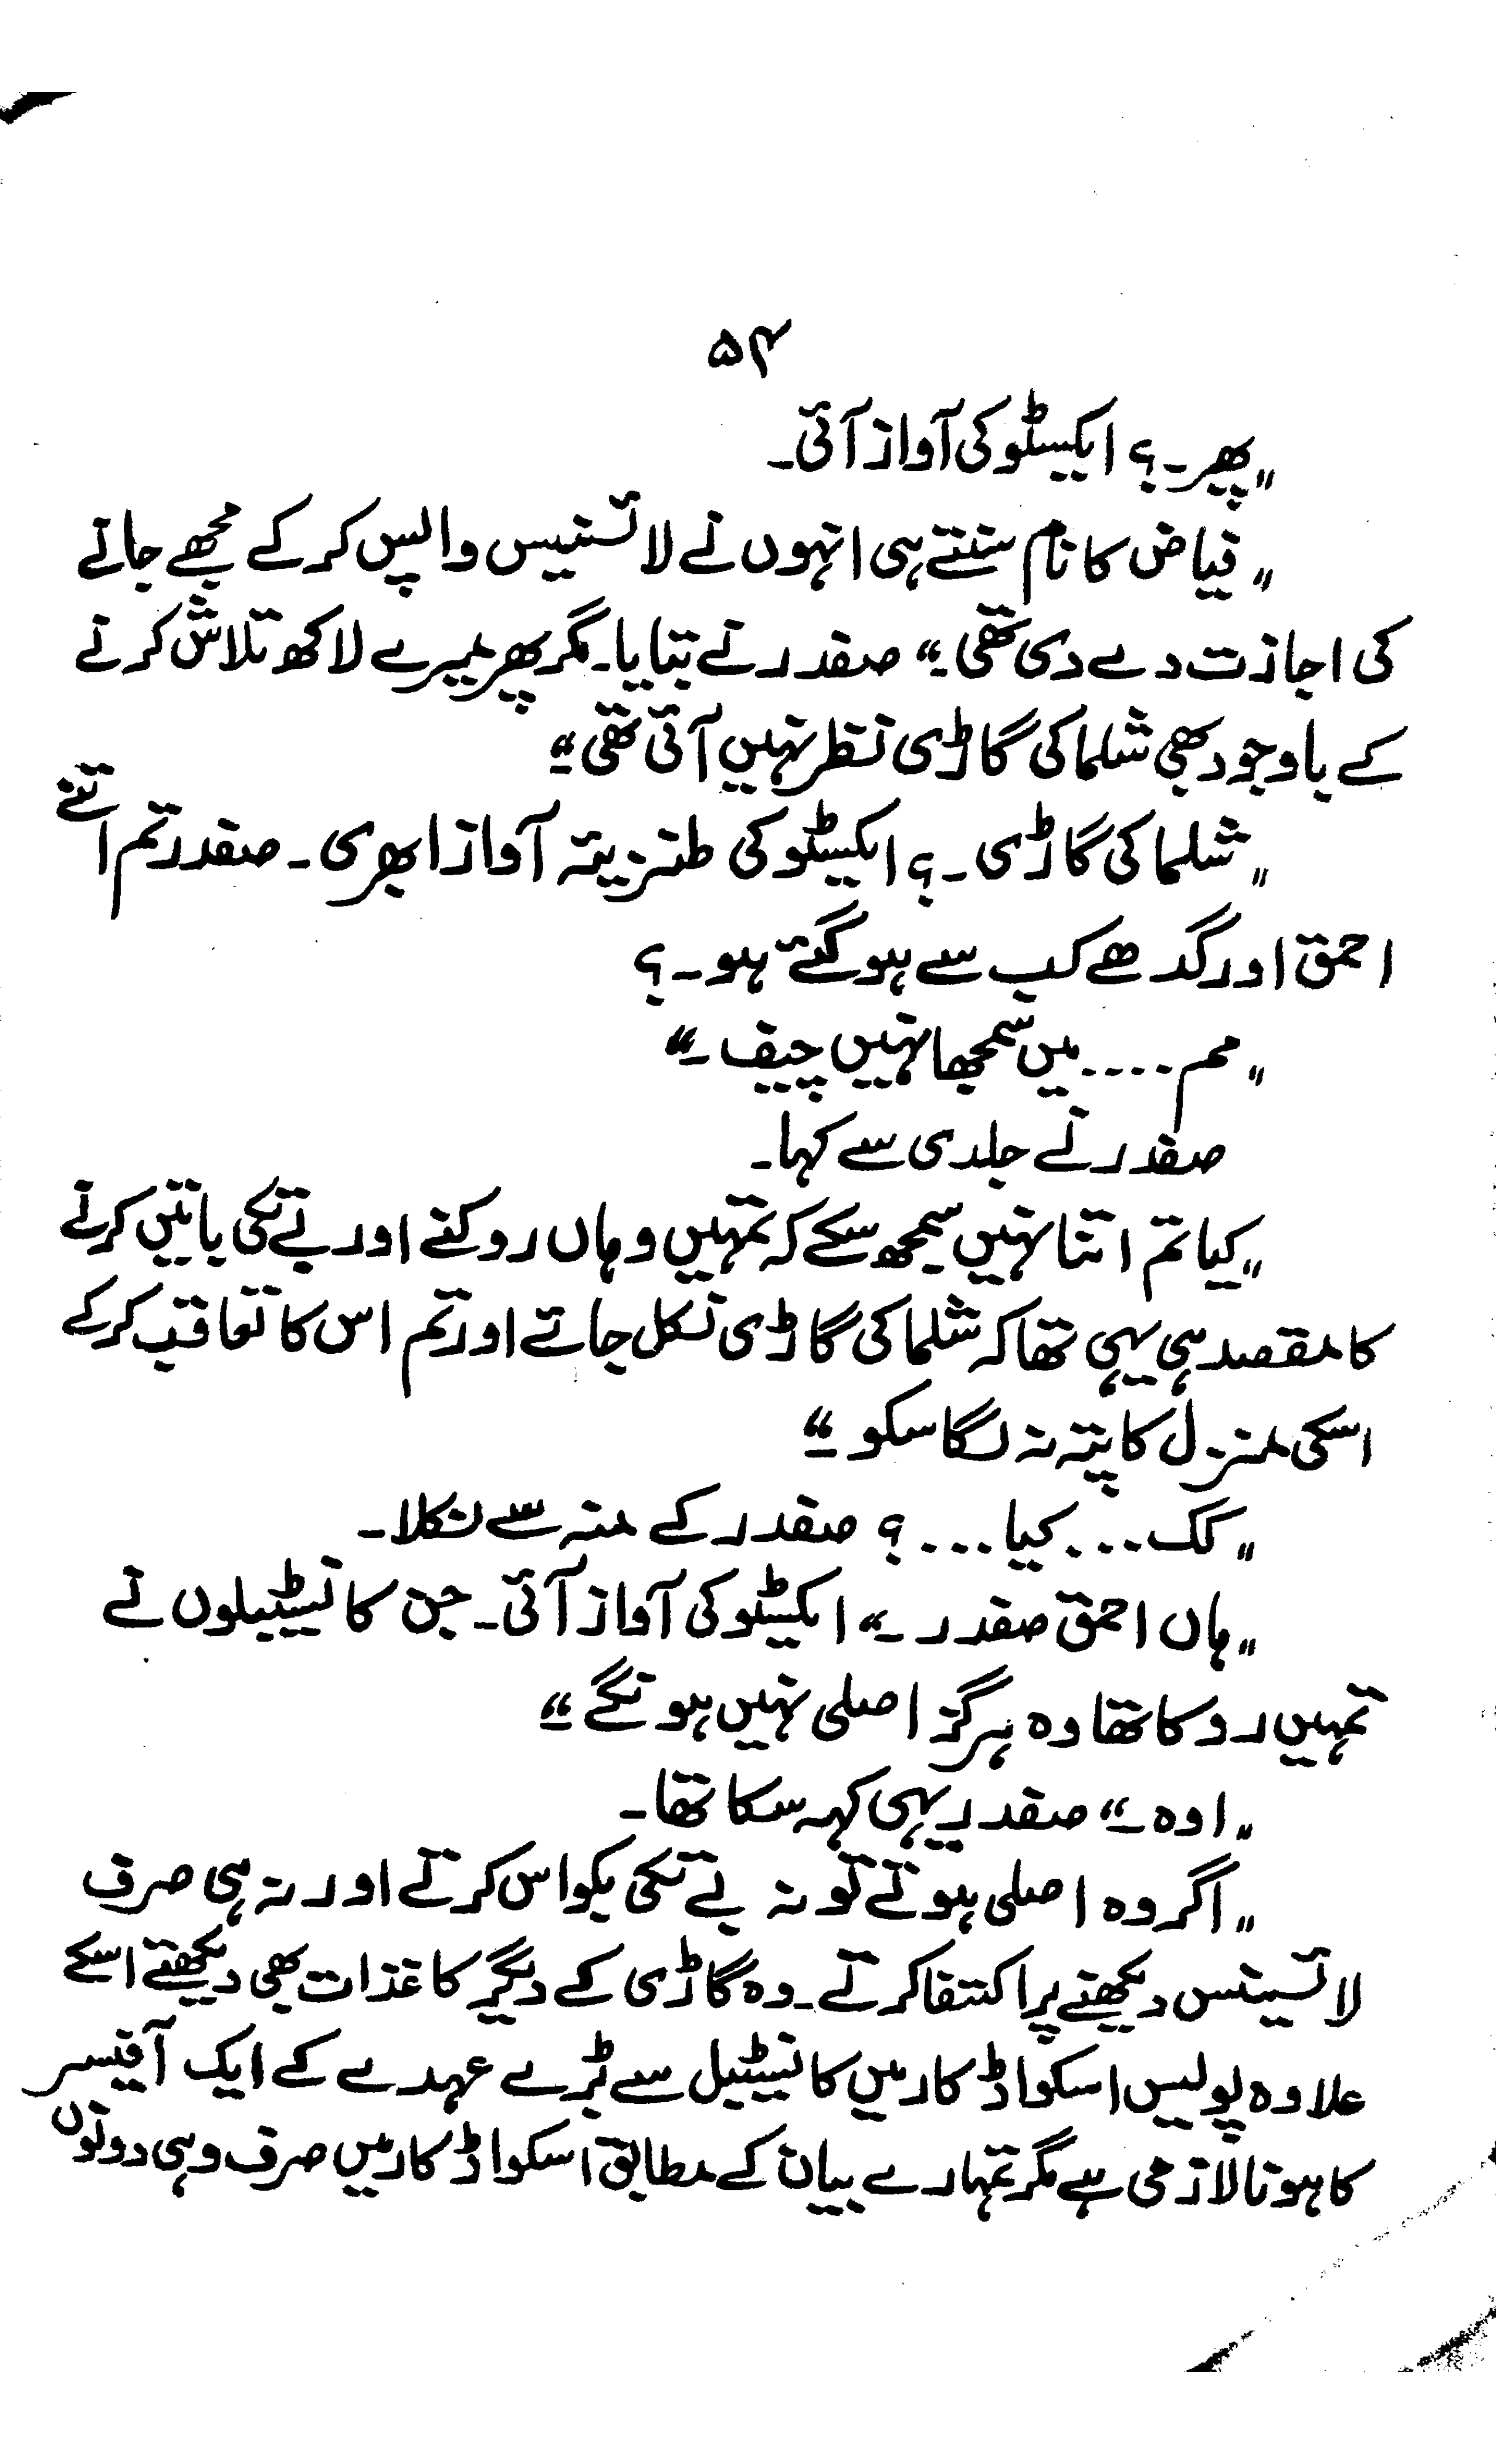 ۵۴
"پھر۔؟ ایکسٹو کی آواز آئی۔
"فیاض کا نام سنتے ہی انہوں نے لائسنیس واپس کر کے مجھے جانے
کی اجازت دے دی تھی۔" صفدر نے بتایا۔ مگر پھر میرے لاکھ تلاش کرنے
کے باوجود بھی شلما کی گاڑی نظر نہیں آئی تھی۔"
"شلما کی گاڑی۔؟ ایکسٹو کی طنزیہ آواز ابھری۔ صفدر تم اتنے
احمق اور گدھے کب سے ہو گئے ہو۔؟
"مم.... میں سمجھا نہیں چیف۔"
صفدر نے جلدی سے کہا۔
"کیا تم اتنا نہیں سمجھ سکے کہ تمہیں وہاں روکنے اور بے تکی باتیں کرنے
کا مقصد ہی یہی تھا کہ شلما کی گاڑی نکل جائے اور تم اس کا تعاقب کر کے
اسکی منزل کا پتہ نہ لگا سکو۔"
"کک... کیا...؟ صفدر کے منہ سے نکلا۔
"ہاں احمق صفدر۔" ایکسٹو کی آواز آئی۔ جن کانسٹیبلوں نے
تمہیں روکا تھا وہ ہرگز اصلی نہیں ہونگے۔"
"اوہ۔" صفدر یہی کہہ سکا تھا۔
"اگر وہ اصلی ہوتے تو نہ بے تکی بکواس کرتے اور نہ ہی صرف
لائسینس دیکھنے پر اکتفا کرتے۔ وہ گاڑی کے دیگر کاغذات بھی دیکھتے اسکے
علاوہ پولیس اسکواڈ کار میں کانسٹیبل سے بڑے عہدے کے ایک آفیسر
کا ہونا لازمی ہے مگر تمہارے بیان کے مطابق اسکواڈ کار میں صرف وہی دونوں